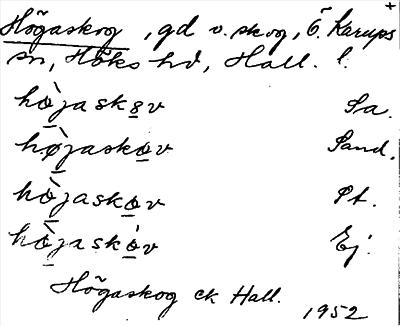 +
Högaskog, gd o. skog, Ö. Karups
sn, Höks hd, Hall. l.
hø̀jaskɷv Sa.
hø̀jaskɷv Sand.
hø̀jaskɷv Pt.
hø̀jaskɷ́v Ej.
Högaskog ek Hall.
1952